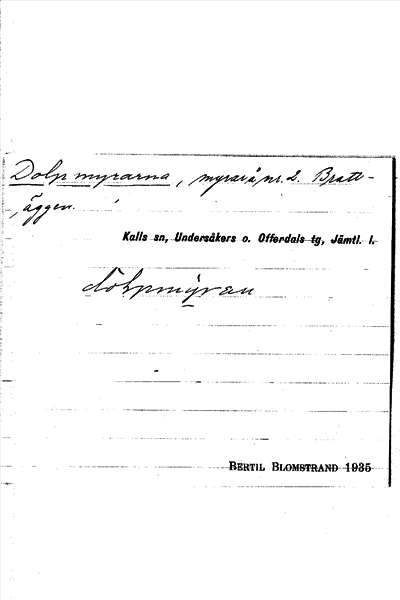 Dolpmyrarna, myrar å nr. 2. Bratt-
äggen.
Kalls sn, Undersåkers o. Offerdals tg, Jämtl. l.
dolpmýran
BERTIL BLOMSTRAND 1935